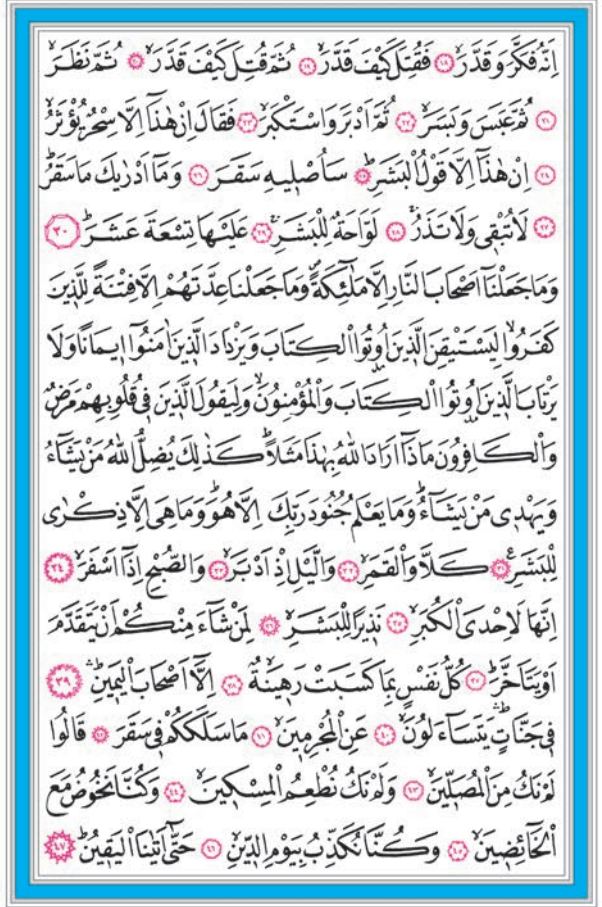 اِنَّهُ فَكَّرَ وَقَدَّرَۙ ﴿١٨﴾ فَقُتِلَ كَيْفَ قَدَّرَۙ ﴿١٩﴾ ثُمَّ قُتِلَ كَيْفَ قَدَّرَۙ ﴿٢٠﴾ ثُمَّ نَظَرَۙ
﴿٢١﴾ ثُمَّ عَبَسَ وَبَسَرَۙ ﴿٢٢﴾ ثُمَّ اَدْبَرَ وَاسْتَكْبَرَۙ ﴿٢٣﴾ فَقَالَ اِنْ هٰذَٓا اِلَّا سِحْرٌ يُؤْثَرُۙ
﴿٢٤﴾ اِنْ هٰذَٓا اِلَّا قَوْلُ الْبَشَرِۜ ﴿٢٥﴾ سَاُصْلٖيهِ سَقَرَ ﴿٢٦﴾ وَمَٓا اَدْرٰيكَ مَا سَقَرُۜ
﴿٢٧﴾ لَا تُبْقٖي وَلَا تَذَرُۚ ﴿٢٨﴾ لَوَّاحَةٌ لِلْبَشَرِۚ ﴿٢٩﴾ عَلَيْهَا تِسْعَةَ عَشَرَۜ ﴿٣٠﴾
وَمَا جَعَلْنَٓا اَصْحَابَ النَّارِ اِلَّا مَلٰٓئِكَةًۖ وَمَا جَعَلْنَا عِدَّتَهُمْ اِلَّا فِتْنَةً لِلَّذٖينَ
كَفَرُواۙ لِيَسْتَيْقِنَ الَّذٖينَ اُو۫تُوا الْكِتَابَ وَيَزْدَادَ الَّذٖينَ اٰمَنُٓوا اٖيمَانًا وَلَا
يَرْتَابَ الَّذٖينَ اُو۫تُوا الْكِتَابَ وَالْمُؤْمِنُونَۙ وَلِيَقُولَ الَّذٖينَ فٖي قُلُوبِهِمْ مَرَضٌ
وَالْكَافِرُونَ مَاذَٓا اَرَادَ اللّٰهُ بِهٰذَا مَثَلًاۜ كَذٰلِكَ يُضِلُّ اللّٰهُ مَنْ يَشَٓاءُ
وَيَهْدٖي مَنْ يَشَٓاءُۜ وَمَا يَعْلَمُ جُنُودَ رَبِّكَ اِلَّا هُوَۜ وَمَا هِيَ اِلَّا ذِكْرٰى
لِلْبَشَرِࣖ ﴿٣١﴾ كَلَّا وَالْقَمَرِۙ ﴿٣٢﴾ وَالَّيْلِ اِذْ اَدْبَرَۙ ﴿٣٣﴾ وَالصُّبْحِ اِذَٓا اَسْفَرَۙ ﴿٣٤﴾
اِنَّهَا لَاِحْدَى الْكُبَرِۙ ﴿٣٥﴾ نَذٖيرًا لِلْبَشَرِۙ ﴿٣٦﴾ لِمَنْ شَٓاءَ مِنْكُمْ اَنْ يَتَقَدَّمَ
اَوْ يَتَاَخَّرَۜ ﴿٣٧﴾ كُلُّ نَفْسٍ بِمَا كَسَبَتْ رَهٖينَةٌۙ ﴿٣٨﴾ اِلَّٓا اَصْحَابَ الْيَمٖينِۜۛ ﴿٣٩﴾
فٖي جَنَّاتٍۜۛ يَتَسَٓاءَلُونَۙ ﴿٤٠﴾ عَنِ الْمُجْرِمٖينَۙ ﴿٤١﴾ مَا سَلَكَكُمْ فٖي سَقَرَ ﴿٤٢﴾ قَالُوا
لَمْ نَكُ مِنَ الْمُصَلّٖينَۙ ﴿٤٣﴾ وَلَمْ نَكُ نُطْعِمُ الْمِسْكٖينَۙ ﴿٤٤﴾ وَكُنَّا نَخُوضُ مَعَ
الْخَٓائِضٖينَۙ ﴿٤٥﴾ وَكُنَّا نُكَذِّبُ بِيَوْمِ الدّٖينِۙ ﴿٤٦﴾ حَتّٰٓى اَتٰينَا الْيَقٖينُۜ ﴿٤٧﴾